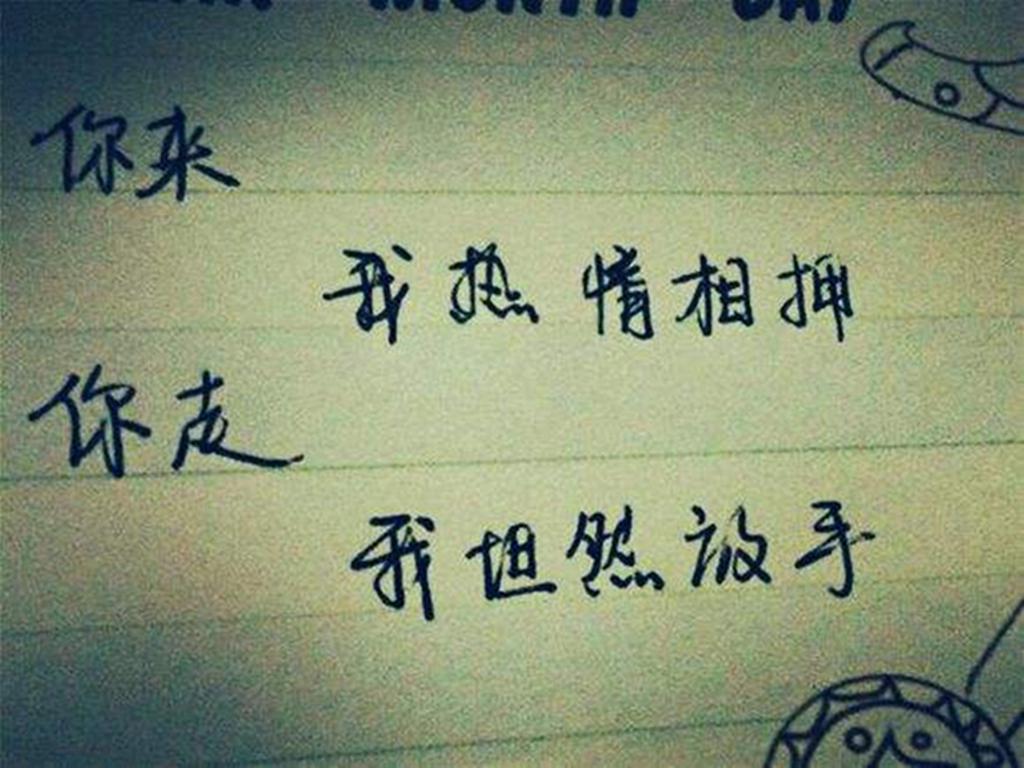 MONTH DAY
你来
我热情相拥
你走
我坦然放手